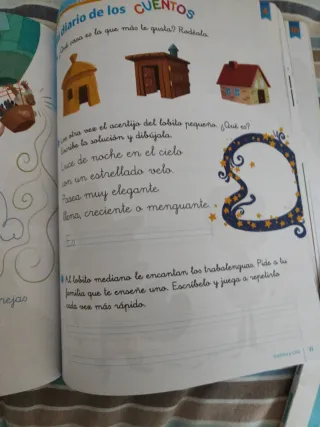 diario de los CUENTOS
¿Qué casa es la que más te gusta? Rodéala.
otra vez el acertijo del lobito pequeño. ¿Qué es?
Escribe la solución y dibújala.
Luce de noche en el cielo
con un estrellado velo.
Pasea muy elegante,
llena, creciente o menguante.
Es
Al lobito mediano le encantan los trabalenguas. Pide a tu
familia que te enseñe uno. Escríbelo y juega a repetirlo
cada vez más rápido.
ejas